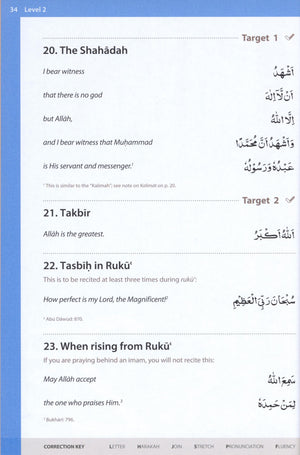 34 Level 2
Target 1
20. The Shahādah
I bear witness اَشْهَدُ
that there is no god اَنْ لَّاۤ اِلٰهَ
but Allāh, اِلَّا اللهُ
and I bear witness that Muḥammad وَاَشْهَدُ اَنَّ مُحَمَّدًا
is His servant and messenger.¹ عَبْدُهٗ وَرَسُوْلُهٗ
¹ This is similar to the "Kalimah"; see note on Kalimah on p. 20.
Target 2
21. Takbir
Allāh is the greatest. اَللهُ اَكْبَرُ
22. Tasbiḥ in Rukūʿ
This is to be recited at least three times during rukūʿ:
How perfect is my Lord, the Magnificent!² سُبْحَانَ رَبِّيَ الْعَظِيْمِ
² Abu Dāwūd: 870.
23. When rising from Rukūʿ
If you are praying behind an imam, you will not recite this:
May Allāh accept سَمِعَ اللهُ
the one who praises Him.³ لِمَنْ حَمِدَهٗ
³ Bukhari: 796.
CORRECTION KEY LETTER HARAKAH JOIN STRETCH PRONUNCIATION FLUENCY